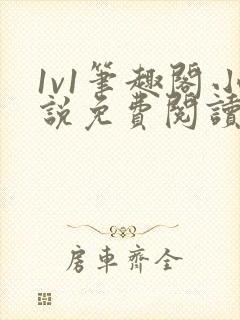 1v1筆趣閣.小
說免費閱讀
房車齊全